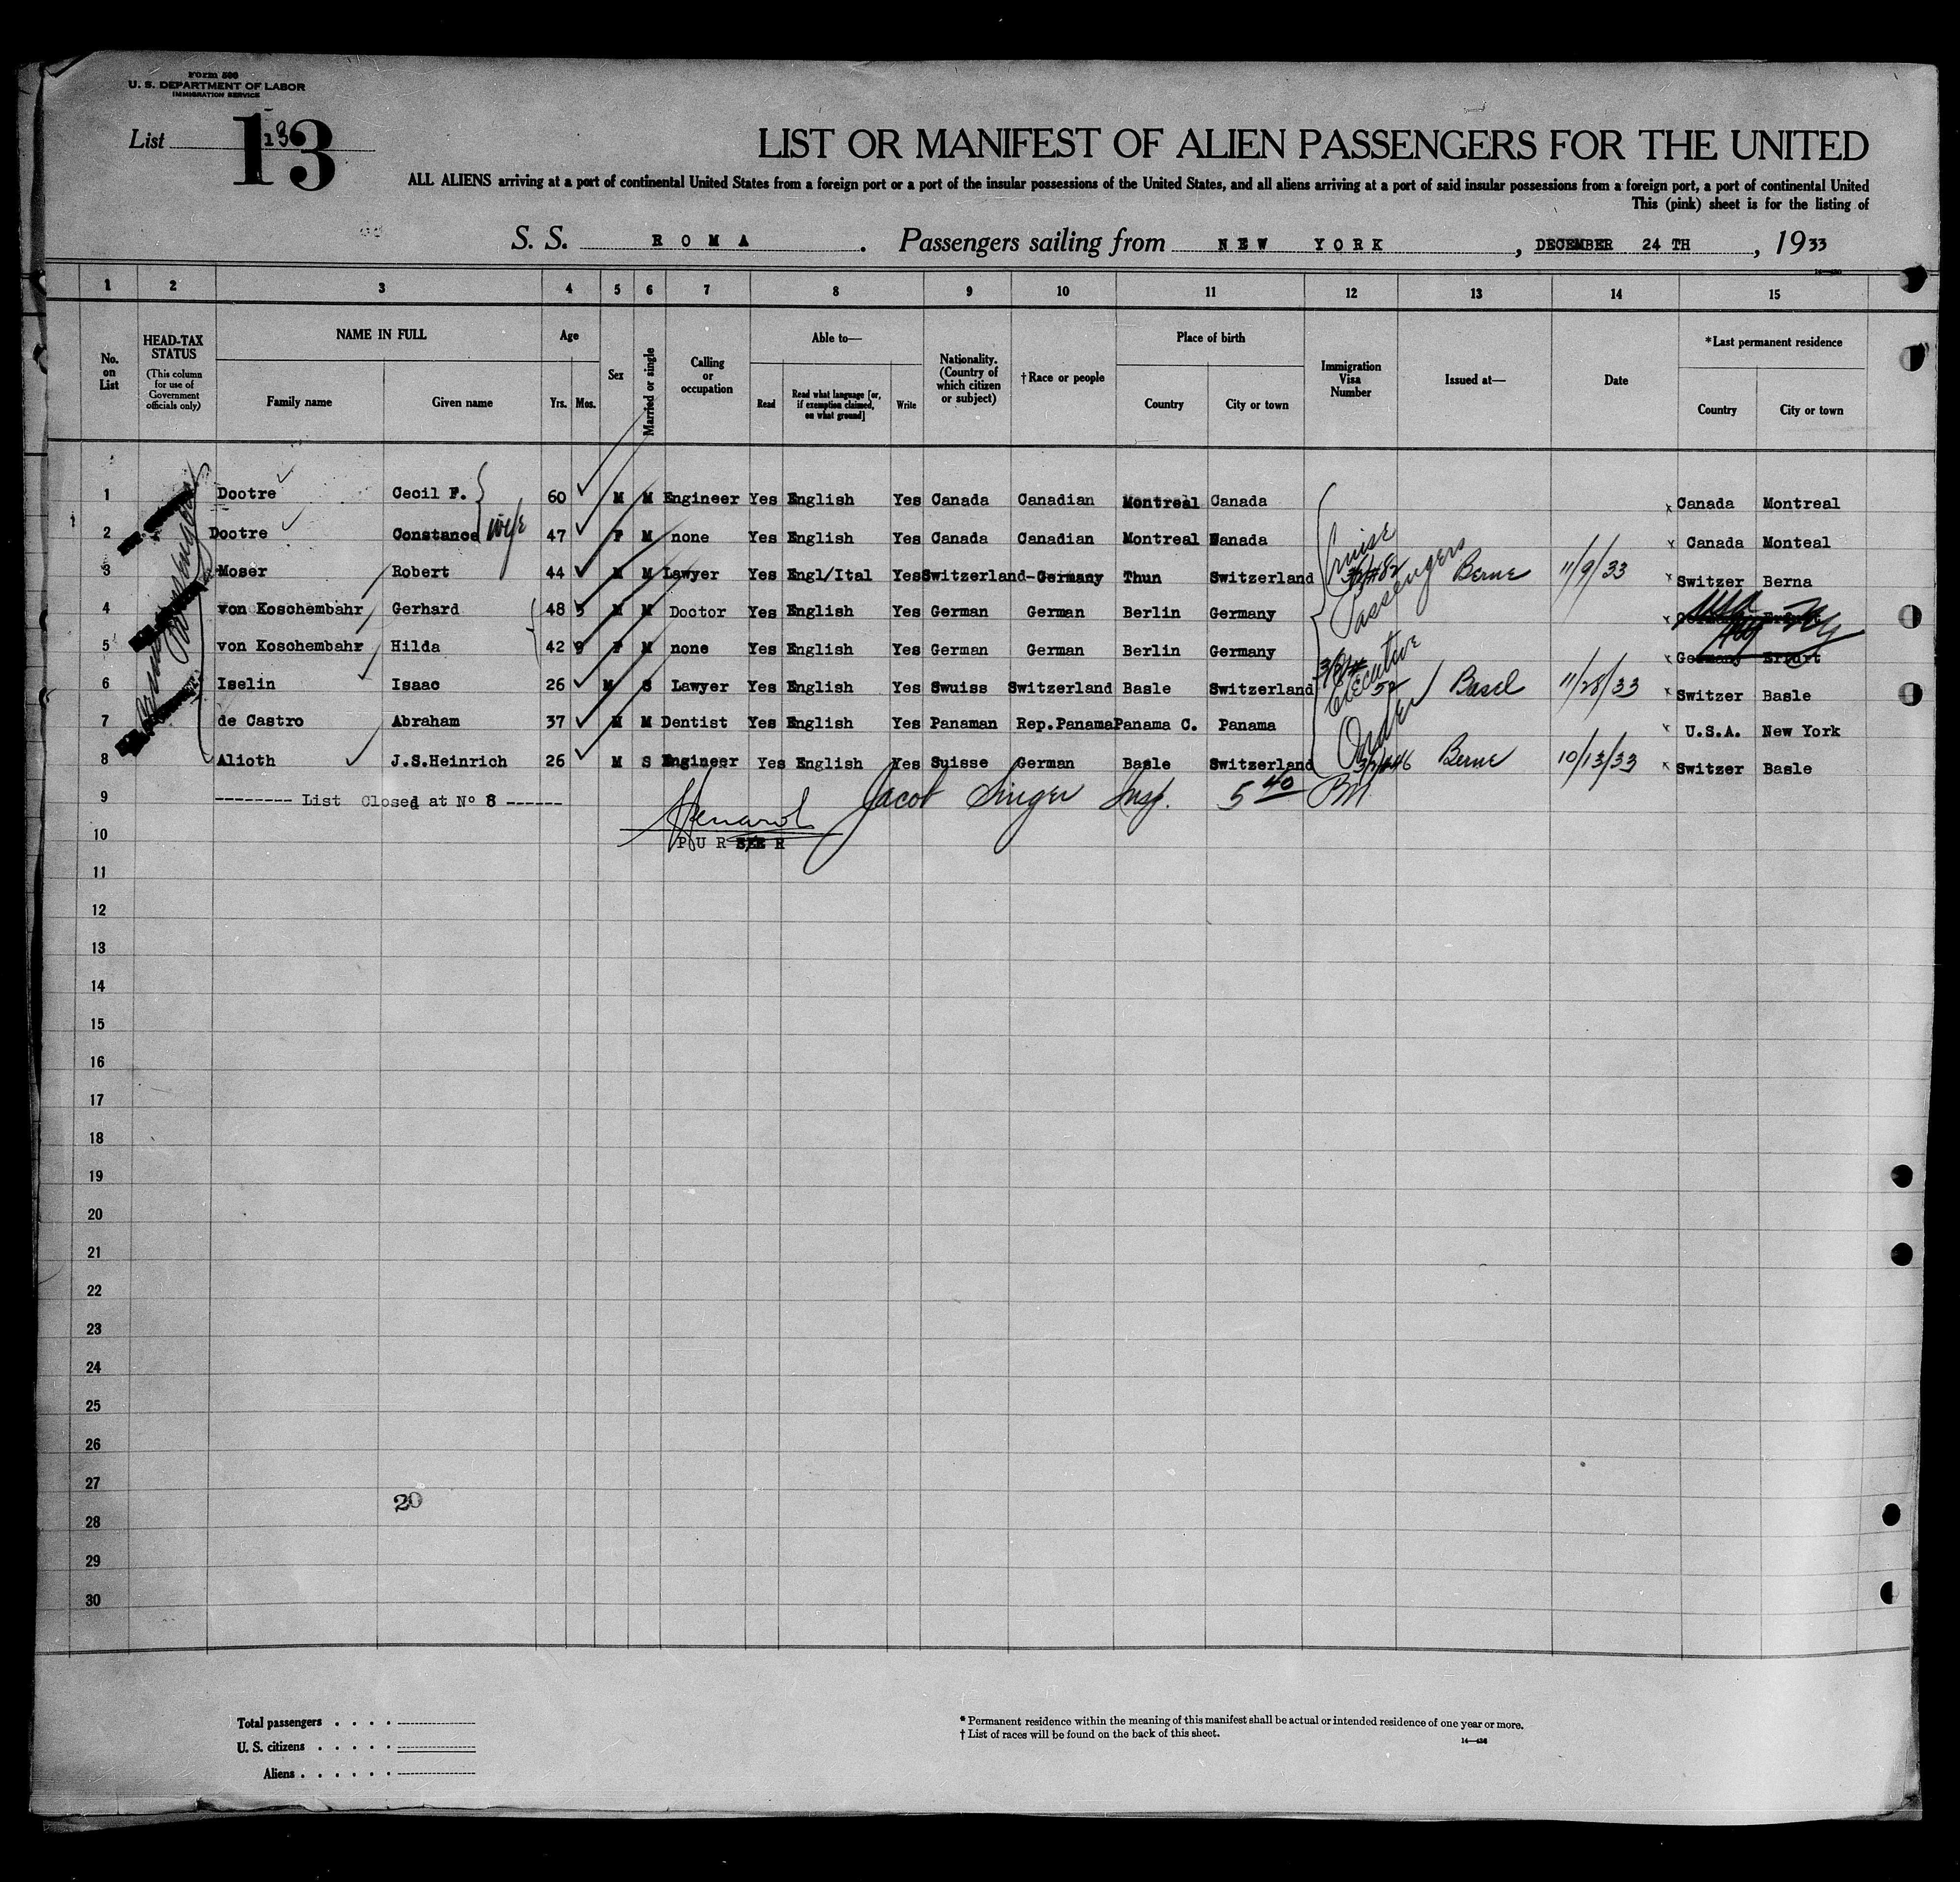 Form 500
U. S. DEPARTMENT OF LABOR
IMMIGRATION SERVICE
List 13
13
LIST OR MANIFEST OF ALIEN PASSENGERS FOR THE UNITED
ALL ALIENS arriving at a port of continental United States from a foreign port or a port of the insular possessions of the United States, and all aliens arriving at a port of said insular possessions from a foreign port, a port of continental United
This (pink) sheet is for the listing of
S. S. ROMA. Passengers sailing from NEW YORK, DECEMBER 24 TH, 1933
1 2 3 4 5 6 7 8 9 10 11 12 13 14 15
No. on List
HEAD-TAX STATUS
(This column for use of Government officials only)
NAME IN FULL
Family name Given name
Age
Yrs. Mos.
Sex
Married or single
Calling or occupation
Able to—
Read Read what language [or, if exemption claimed, on what ground] Write
Nationality. (Country of which citizen or subject)
†Race or people
Place of birth
Country City or town
Immigration Visa Number
Issued at—
Date
*Last permanent residence
Country City or town
1 Dootre Cecil F. 60 M M Engineer Yes English Yes Canada Canadian Montreal Canada Canada Montreal
2 Dootre Constance wife 47 F M none Yes English Yes Canada Canadian Montreal Canada Canada Monteal
3 Moser Robert 44 M M Lawyer Yes Engl/Ital Yes Switzerland-Germany Thun Switzerland Berne 11/9/33 Switzer Berna
4 von Koschembahr Gerhard 48 5 M M Doctor Yes English Yes German German Berlin Germany USA NY
5 von Koschembahr Hilda 42 9 F M none Yes English Yes German German Berlin Germany Germany Erfurt
6 Iselin Isaac 26 M S Lawyer Yes English Yes Swuiss Switzerland Basle Switzerland Basel 11/28/33 Switzer Basle
7 de Castro Abraham 37 M M Dentist Yes English Yes Panaman Rep.Panama Panama C. Panama U.S.A. New York
8 Alioth J.S.Heinrich 26 M S Engineer Yes English Yes Suisse German Basle Switzerland Berne 10/13/33 Switzer Basle
Cruise Passengers
Executive Order
9 -------- List Closed at No 8 ------
Jacob Singer Insp. 5 40
10
PURSER
11
12
13
14
15
16
17
18
19
20
21
22
23
24
25
26
27
20
28
29
30
Total passengers . . . .
U. S. citizens . . . . .
Aliens . . . . . .
* Permanent residence within the meaning of this manifest shall be actual or intended residence of one year or more.
† List of races will be found on the back of this sheet.